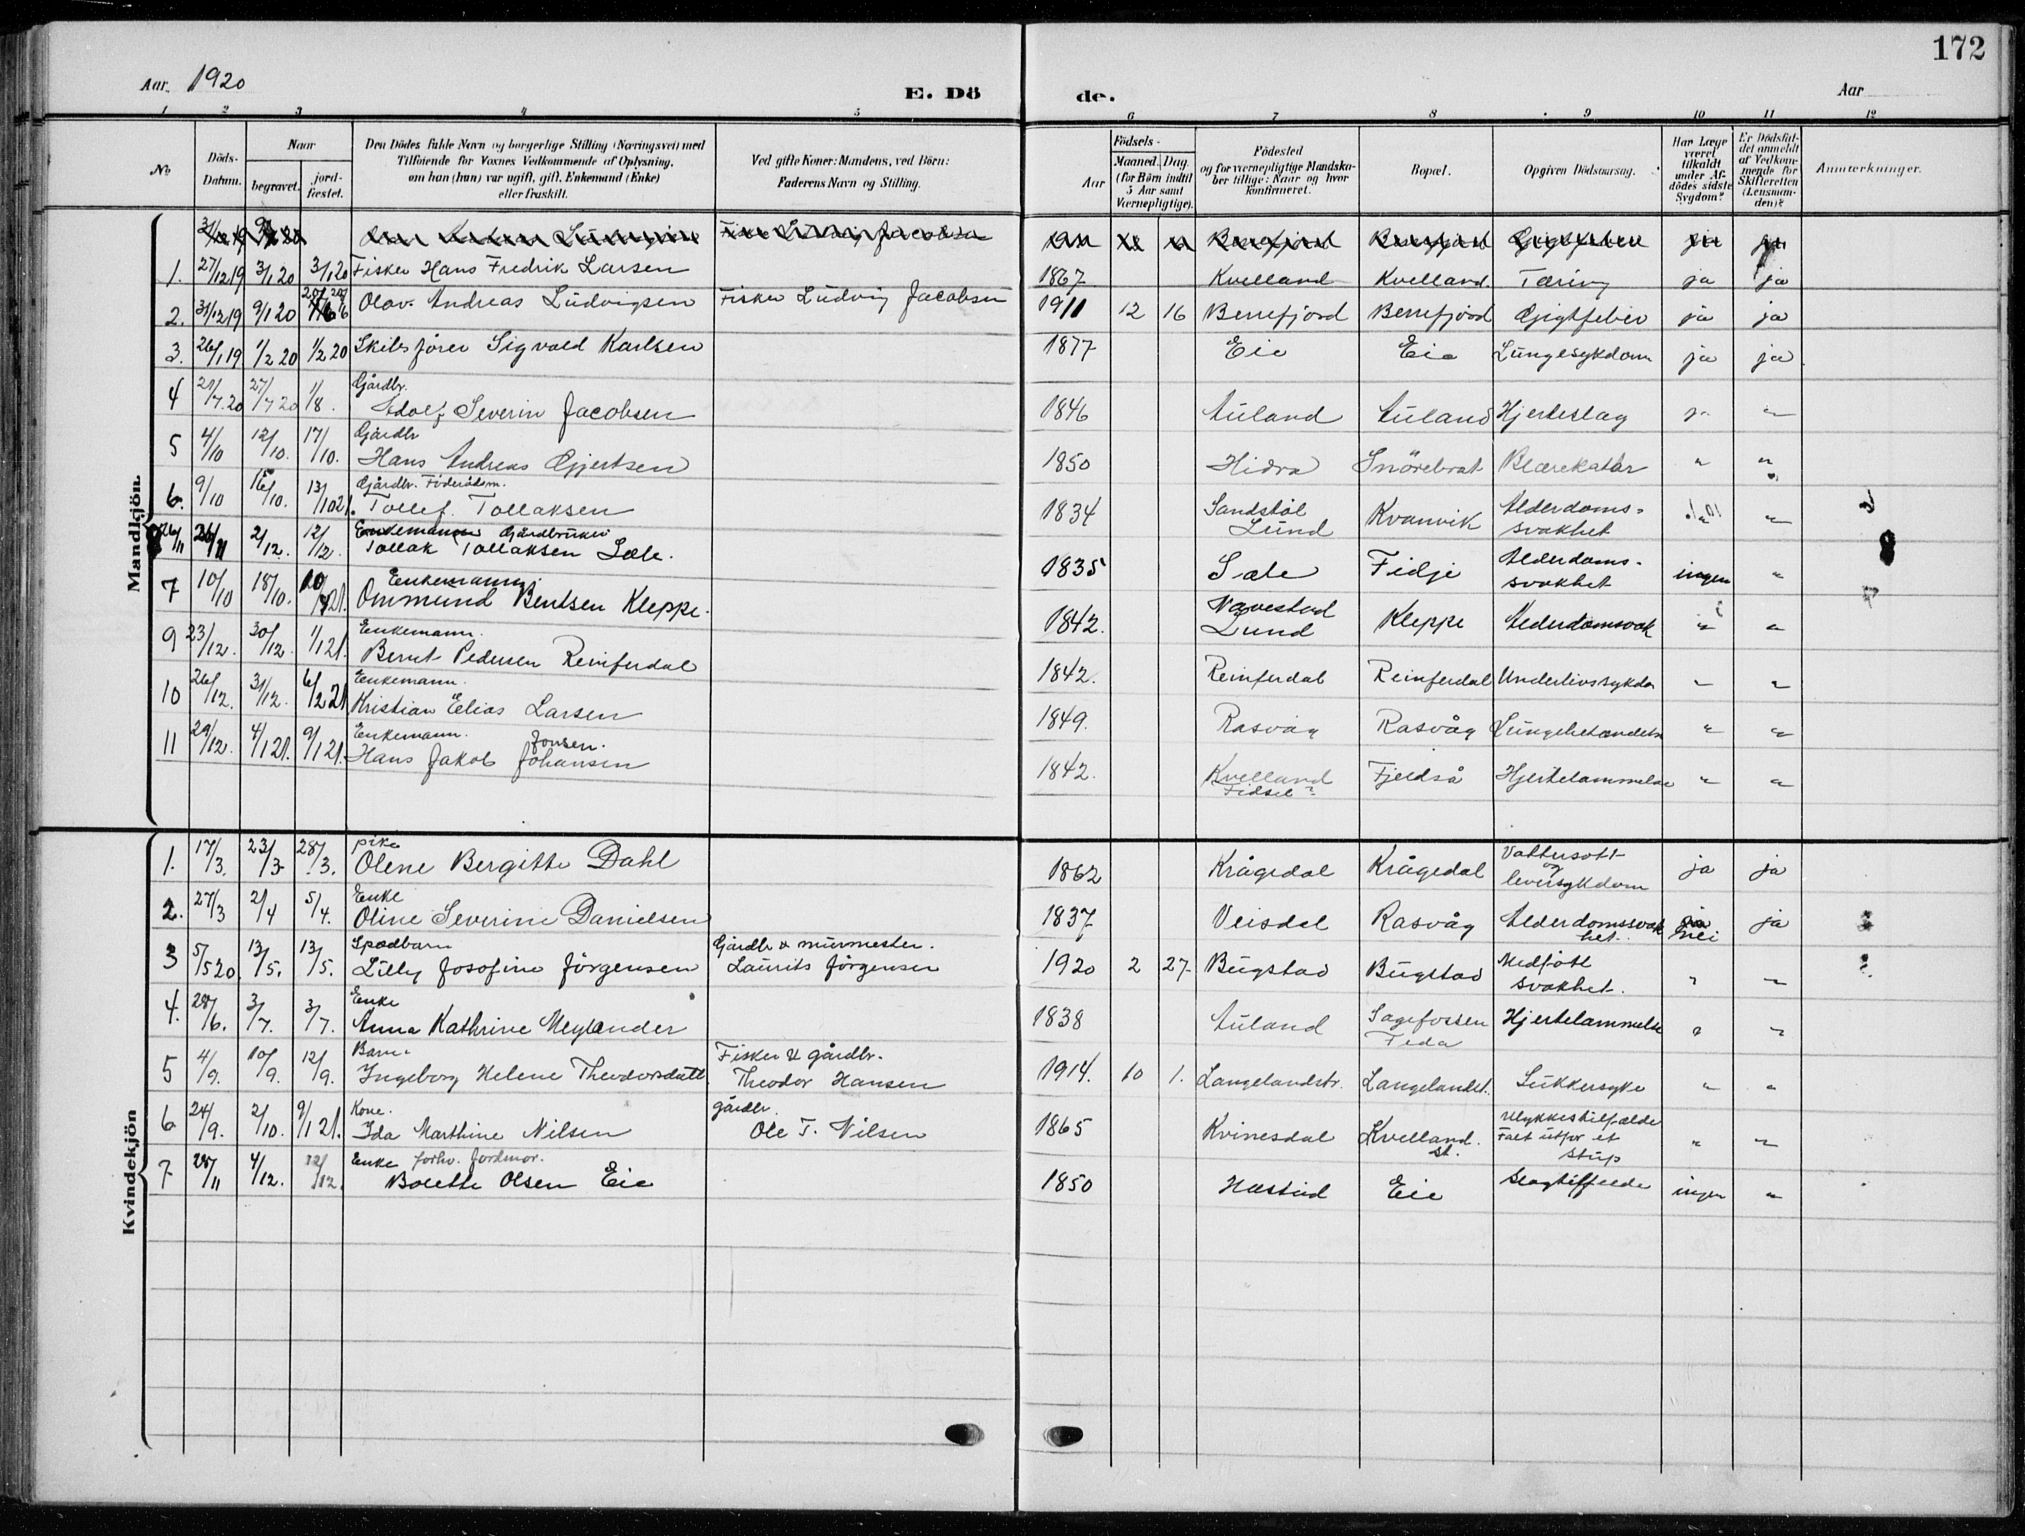 172
Aar. 1920
E. Dö de.
Aar
1 2 3 4 5 6 7 8 9 10 11 12
No
Döds-Datum.
Naar
begravet.
jord-fæstet.
Den Dödes fulde Navn og borgerlige Stilling (Næringsvei) med Tilföiende for Voxnes Vedkommende af Oplysning, om han (hun) var ugift, gift, Enkemand (Enke) eller fraskilt.
Ved gifte Koner: Mandens, ved Börn: Faderens Navn og Stilling.
Aar
Födsels-
Maaned. Dag.
(for Börn indtil 5 Aar samt Værnepligtige).
Födested og for værnepligtige Mandskaber tillige: Naar og hvor konfirmeret.
Bopæl.
Opgiven Dödsaarsag.
Har Læge været tilkaldt under Afdödes sidste Sygdom?
Er Dödsfaldet anmeldt af Vedkommende for Skifteretten (Lensmanden)?
Anmerkninger.
Mandkjön.
1. 27/12 19 3/1 20 3/1 20 Fisker Hans Fredrik Larsen 1867 Kvelland Kvelland. Tæring ja ja
2. 31/12 19 9/1 20 Olav Andreas Ludvigsen Fisker Ludvig Jacobsen 1911 12 16 Berrefjord Berrefjord Gigtfeber ja ja
3. 26/1 19 1/2 20 1/2 20 Skibsförer Sigvald Karlsen 1877 Eie Eie Lungesykdom ja ja
4 21/7.20 27/7 20 1/8. Gårdbr. Adolf Severin Jacobsen 1846 Auland Auland Hjerteslag "
5 4/10 12/10. 17/10. Gårdbr Hans Andreas Gjertsen 1850 Hidra Snörebrat Blærekatar " "
6. 9/10 16/10. 13/10 21. Gårdbr. Föderådsm. Tollef Tollaksen 1834 Sandstöl Lund Kvanvik Alderdoms-svakhet "
8 26/11 2/12. 12/12. Enkemann Gårdbruker Tollak Tollaksen Sæle. 1835 Sæle Fidje Alderdoms-svakhet ingen "
7 10/10 18/10. Enkemann. Ommund Bentsen Kleppe. 1842. Navestad Lund Kleppe Alderdomsvak " "
9 23/12. 30/12. 1/1 21. Enkemann. Bernt Pedersen Reinferdal 1842. Reinferdal Reinferdal Underlivssykdo " "
10 26/12. 31/12. 6/2 21. Enkemann. Kristian Elias Larsen 1849. Rasvåg Rasvåg Lungebetændelse " "
11 29/12. 4/1 21. 9/1 21. Enkemann. Jonsen. Hans Jakob Johansen 1842. Kvelland Fidsel? Fjeldså Hjertelammelse " "
Kvindekjön
1. 17/3. 23/3 28/3. pike Olene Bergitte Dahl 1862 Krågedal Krågedal Vattersott og leversykdom ja ja
2. 27/3 2/4 5/4. Enke Oline Severine Danielsen 1837 Veisdal Rasvåg Alderdomssvakhet. nei ja
3 5/5 20. 13/5. 13/5. Spædbarn Lilly Josofine Jörgensen Gårdbr & murmester. Laurits Jörgensen 1920 2 27. Bugstad Bugstad Medfött svakhet. " "
4. 28/6. 3/7. 3/7. Enke Anna Kathrine Meylander 1838 Auland Sagefossen Feda Hjertelammelse " "
5 4/9. 10/9. 12/9. Barn. Ingeborg Helene Theodorsdatt. Fisker & gårdbr. Theodor Hansen 1914. 10 1. Langelandstr. Langelandst. Sukkersyke " "
6 24/9. 2/10. 9/1 21. Kone. Ida Marthine Nilsen gårdbr. Ole T. Nilsen 1865 Kvinesdal Kvelland. st. Ulykkestilfælde Falt utfor et stup " "
7 28/11 4/12. 12/12. Enke forhv. Jordmor. Bolette Olsen Eie 1850 Næstad Eie Slagtilfælde ingen "